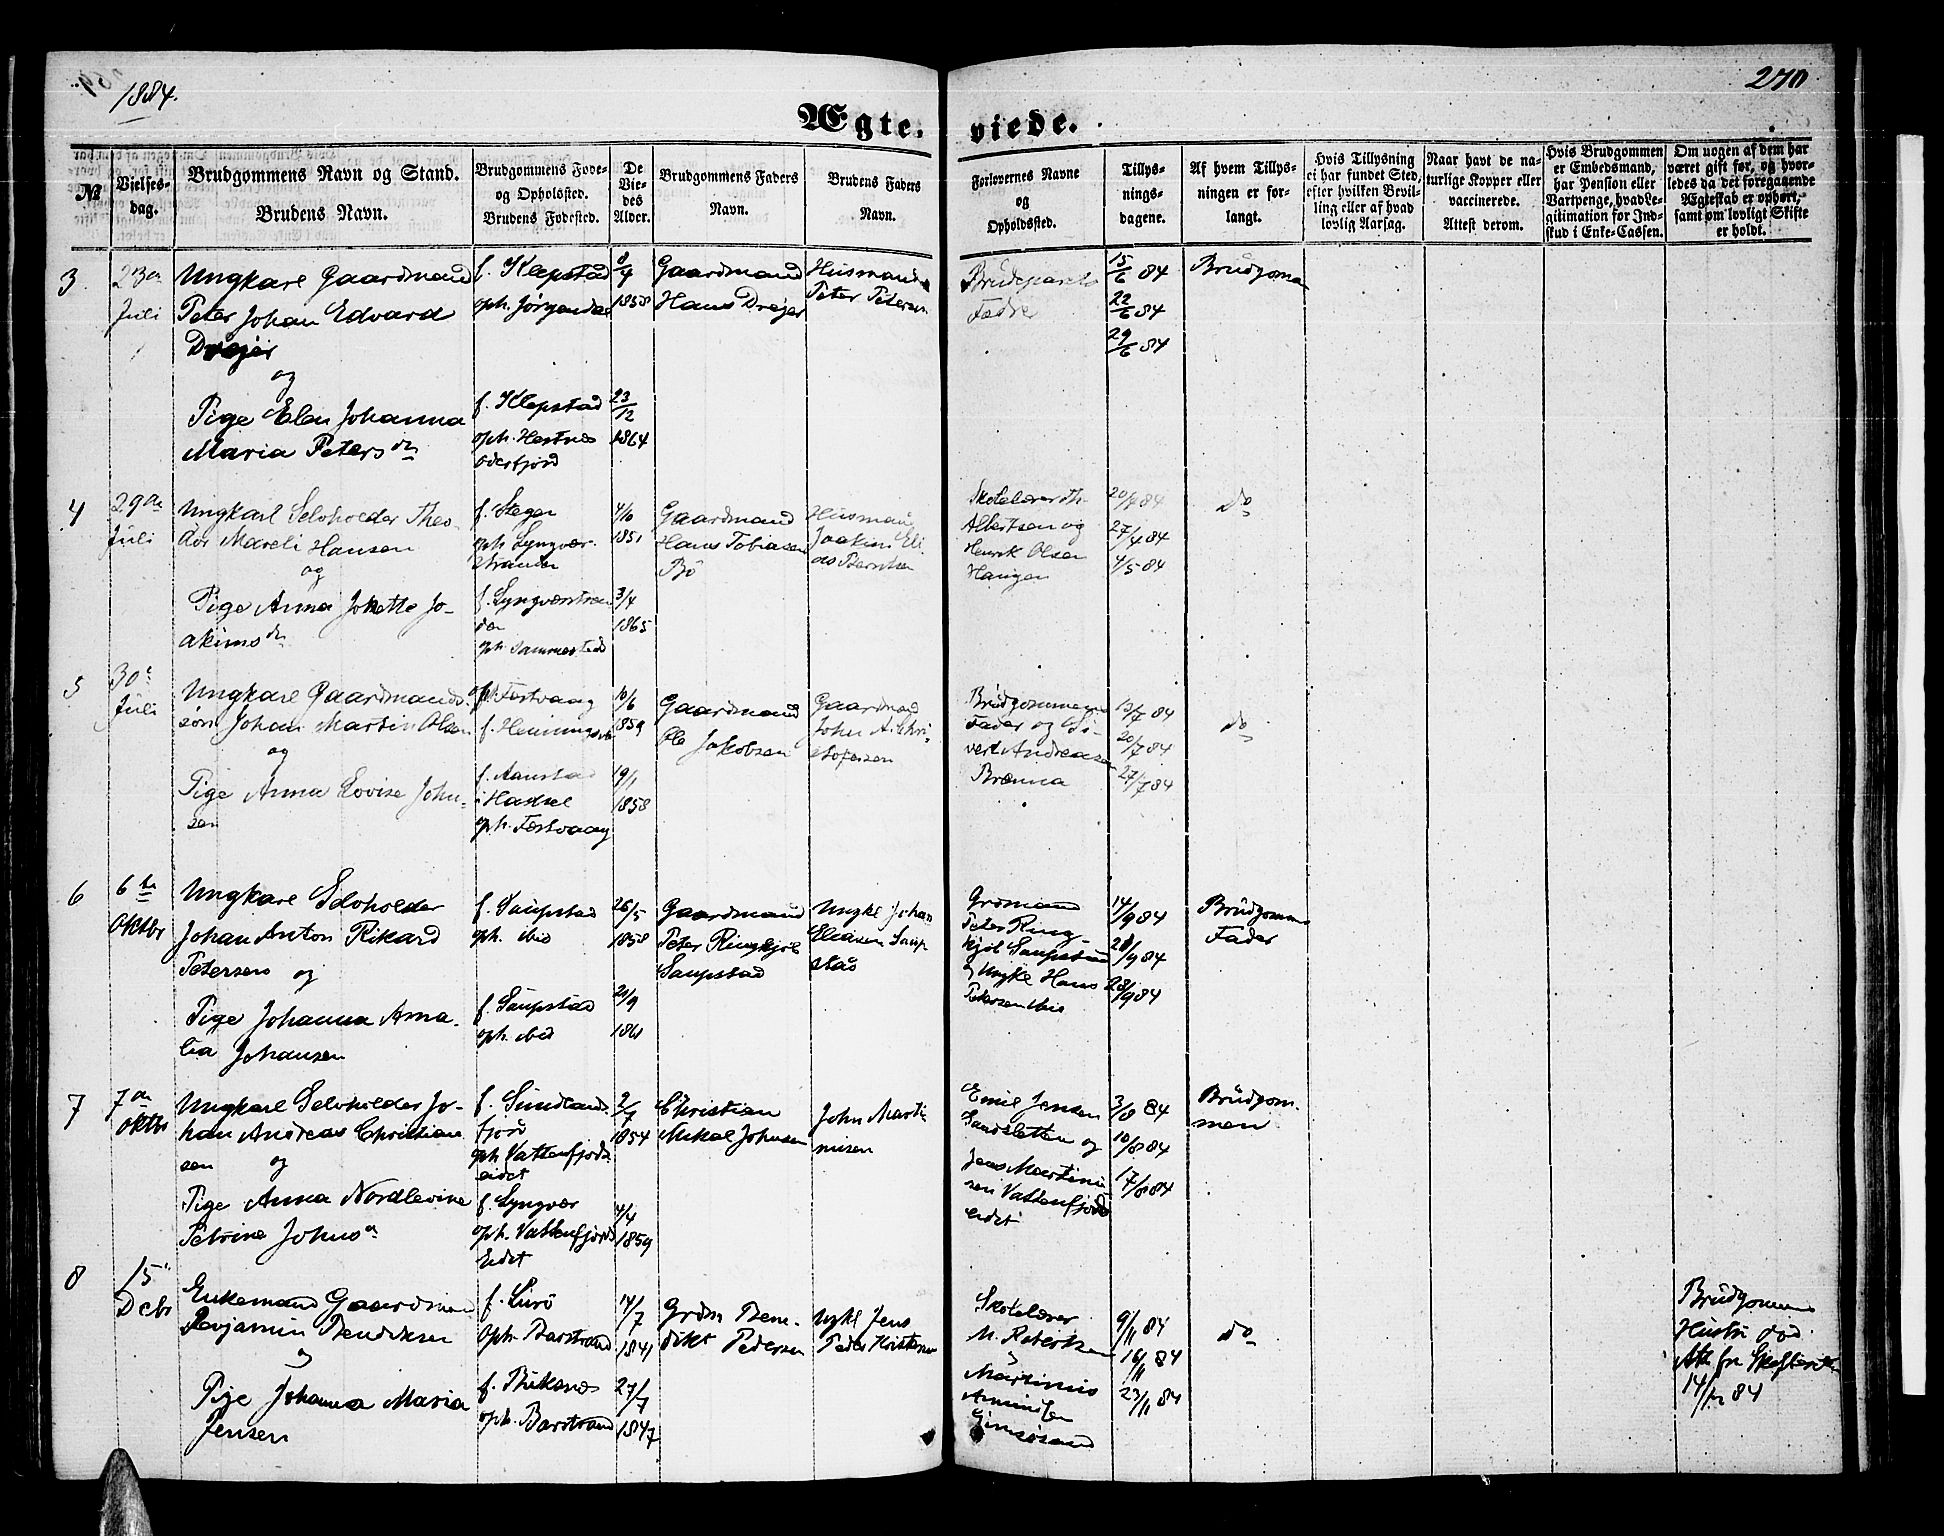 1884.
270
Ægte.
viede.
№
Vielses-
dag.
Brudgommens Navn og Stand.
Brudens Navn.
Brudgommens Føde-
og Opholsted.
Brudens Fødested.
De
Vie-
des
Alder.
Brudgommens Faders
Navn.
Brudens Faders
Navn.
Forlovernes Navne
og
Opholdsted.
Tillys-
nings-
dagene.
Af hvem Tillys-
ningen er for-
langt.
Hvis Tillysning
ei har fundet Sted,
efter hvilken Bevil-
ling eller af hvad
lovlig Aarsag.
Naar havt de na-
turlige Kopper eller
vaccinerede.
Attest derom.
Hvis Brudgommen
er Embedsmand,
har Pension eller
Vartpenge, hvad Le-
gitimation for Ind-
skud i Enke-Cassen.
Om nogen af dem har
været gift før, og hvor-
ledes da det foregaaende
Ægteskab er ophørt,
samt om lovligt Skifte
er holdt.
3
23de
Juli
Ungkarl Gaardmand
Peter Johan Edvard
Drejer
og
Pige Elen Johanna
Maria Petersdn
f. Klepstad
oph. Jørgendal
f. Klepstad
oph. Hestnes
Østerfjord
1858
23/12
1864
Gaardmand
Hans Drejer
Husmand
Peter Petersen
Brudeparets
Fædre
15/6 84
22/6 84
29/6 84
Brudgom
4
29de
Juli
Ungkarl Selvholder Theo-
dor Mareli Hansen
og
Pige Anna Johette Jo-
akimsdn
f. Steger
oph. Lyngvær-
stranden
f. Lyngværstran
den
oph. Sammested
4/10
1851
3/4
1865
Gaardmand
Hans Tobiasen
Bø
Husmand
Joakim Eli
as Berntsen
Skolelærer Th.
Albertsen og
Henrik Olsen
Haugen
20/4 84
27/4 84
4/5 84
do
5
30te
Juli
Ungkarl Gaardmands-
søn Johan Martin Olsen
og
Pige Anna Lovise John-
sen
oph. Festvaag
f. Henningsvær
f. Aanstad
i Hadsel
oph. Festvaag
10/6
1859
19/1
1858
Gaardmand
Ole Jakobsen
Gaardmand
John A. Chri-
stofersen
Brudgommens
Fader og Si-
vert Andreasen
Brænna
13/7 84
20/7 84
27/7 84
do
6
6te
Oktbr
Ungkarl Selvholder
Johan Anton Rikard
Petersen og
Pige Johanna Ama-
lia Johansen
f. Saupstad
oph. ibid
f. Saupstad
oph. ibid
26/5
1858
20/9
1861
Gaardmand
Peter Ringkjøb
Saupstad
Ungkl Johan
Eliasen Saup
stad
Grdmand
Peter Ring-
kjøb Saupstad
og Ungkl Hans
Petersen ibid
14/9 84
21/9 84
28/9 84
Brudgommens
Fader
7
7de
Oktbr
Ungkarl Selvholder Jo-
han Andreas Christian
sen og
Pige Anna Nordlevine
Petrine Johnsd
f. Sundlands
fjord
oph. Vattenfjords
eidet
f. Lyngvær
oph. Vattenfjords
Eidet
2/7
1854
4/4
1859
Christian
Mikal Johnsen
John Marti
nusen
Emil Jensen
Sandsletten og
Jens Martinu
sen Vattenfjords
eidet
3/8 84
10/8 84
17/8 84
Brudgom-
men
8
15
Decbr
Enkemand Gaardman
Benjamin Bendiksen
og
Pige Johanna Maria
Jensen
f. Lurø
oph. Barstrand
f. Brikenes
oph. Barstrand
14/7
1841
27/7
1847
Grdm Ben-
dikt Pedersen
Ugkl Jens
Peder Kristensen
Skolelærer
M. Robertsen
og
Martinus
Amundsen
Gimsøsand
9/11 84
16/11 84
23/11 84
do
Brudgommens
Hustru død.
Att. fra Skifteretten
14/11 84